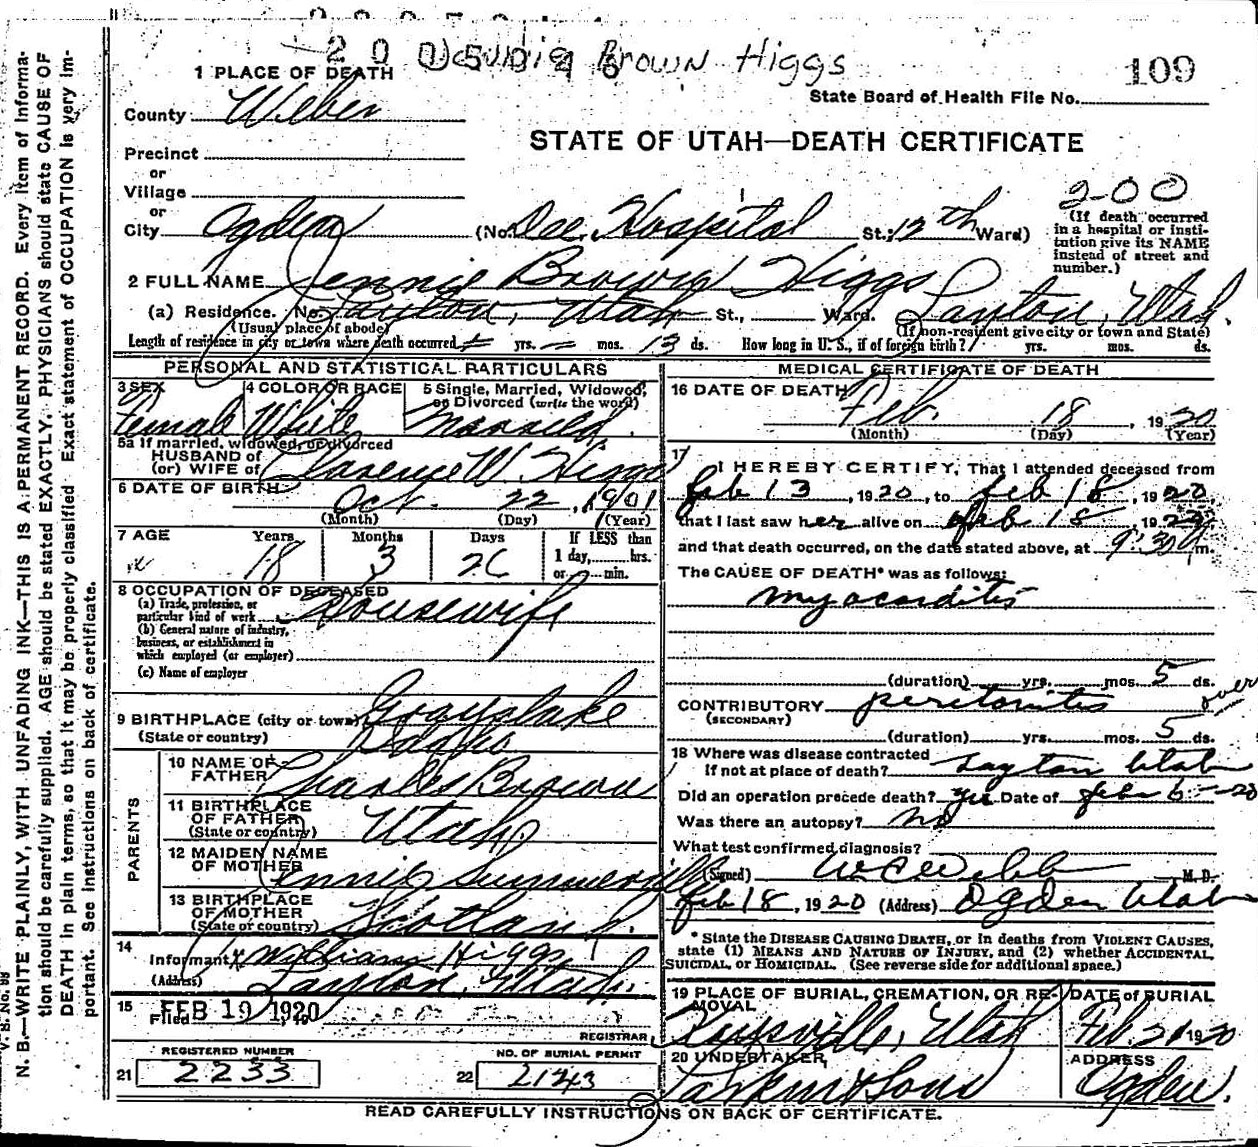 2005046
Brown Higgs
109
1 PLACE OF DEATH
State Board of Health File No.
County Weber
STATE OF UTAH—DEATH CERTIFICATE
Precinct
or
Village
or
City Ogden (No. Dee Hospital St.; 12th Ward)
200
(If death occurred
in a hospital or insti-
tution give its NAME
instead of street and
number.)
2 FULL NAME Jennie Brown Higgs
(a) Residence. No. Layton, Utah St., Ward. Layton, Utah.
(Usual place of abode) (If non-resident give city or town and State)
Length of residence in city or town where death occurred — yrs. — mos. 13 ds. How long in U. S., if of foreign birth? yrs. mos. ds.
PERSONAL AND STATISTICAL PARTICULARS
3 SEX Female
4 COLOR OR RACE White
5 Single, Married, Widowed,
or Divorced (write the word)
Married.
5a If married, widowed, or divorced
HUSBAND of
(or) WIFE of Clarence W. Higgs
6 DATE OF BIRTH Oct. 22, 1901
(Month) (Day) (Year)
7 AGE Years Months Days If LESS than
1 day, hrs.
or min.
18 3 26
8 OCCUPATION OF DECEASED
(a) Trade, profession, or
particular kind of work Housewife
(b) General nature of industry,
business, or establishment in
which employed (or employer)
(c) Name of employer
9 BIRTHPLACE (city or town) Grayslake
(State or country) Idaho
PARENTS
10 NAME OF
FATHER Charles Brown
11 BIRTHPLACE
OF FATHER
(State or country) Utah
12 MAIDEN NAME
OF MOTHER Jennie Summerville
13 BIRTHPLACE
OF MOTHER
(State or country) Scotland.
14
Informant William Higgs
(Address) Layton, Utah.
15
Filed FEB 19 1920, 19
REGISTRAR
REGISTERED NUMBER
21 2233
NO. OF BURIAL PERMIT
22 2143
MEDICAL CERTIFICATE OF DEATH
16 DATE OF DEATH
Feb. 18, 1920
(Month) (Day) (Year)
17
I HEREBY CERTIFY, That I attended deceased from
Feb 13, 1920, to Feb 18, 1920,
that I last saw her alive on Feb 18, 1920,
and that death occurred, on the date stated above, at 9:30 m.
The CAUSE OF DEATH* was as follows:
Myocarditis
(duration) yrs. mos. 5 ds.
CONTRIBUTORY peritonitis over
(SECONDARY)
(duration) yrs. mos. 5 ds.
18 Where was disease contracted
If not at place of death? Layton Utah
Did an operation precede death? yes Date of Feb 6-20
Was there an autopsy? No
What test confirmed diagnosis?
(Signed) Webb M. D.
Feb 18, 1920 (Address) Ogden Utah
* State the DISEASE CAUSING DEATH, or in deaths from VIOLENT CAUSES,
state (1) MEANS AND NATURE OF INJURY, and (2) whether ACCIDENTAL,
SUICIDAL, or HOMICIDAL. (See reverse side for additional space.)
19 PLACE OF BURIAL, CREMATION, OR RE-
MOVAL
Kaysville, Utah
DATE of BURIAL
Feb. 21 1920
20 UNDERTAKER
Larkin & Sons
ADDRESS
Ogden.
READ CAREFULLY INSTRUCTIONS ON BACK OF CERTIFICATE.
N. B.—WRITE PLAINLY, WITH UNFADING INK—THIS IS A PERMANENT RECORD. Every item of informa-
tion should be carefully supplied. AGE should be stated EXACTLY. PHYSICIANS should state CAUSE OF
DEATH in plain terms, so that it may be properly classified. Exact statement of OCCUPATION is very im-
portant. See instructions on back of certificate.